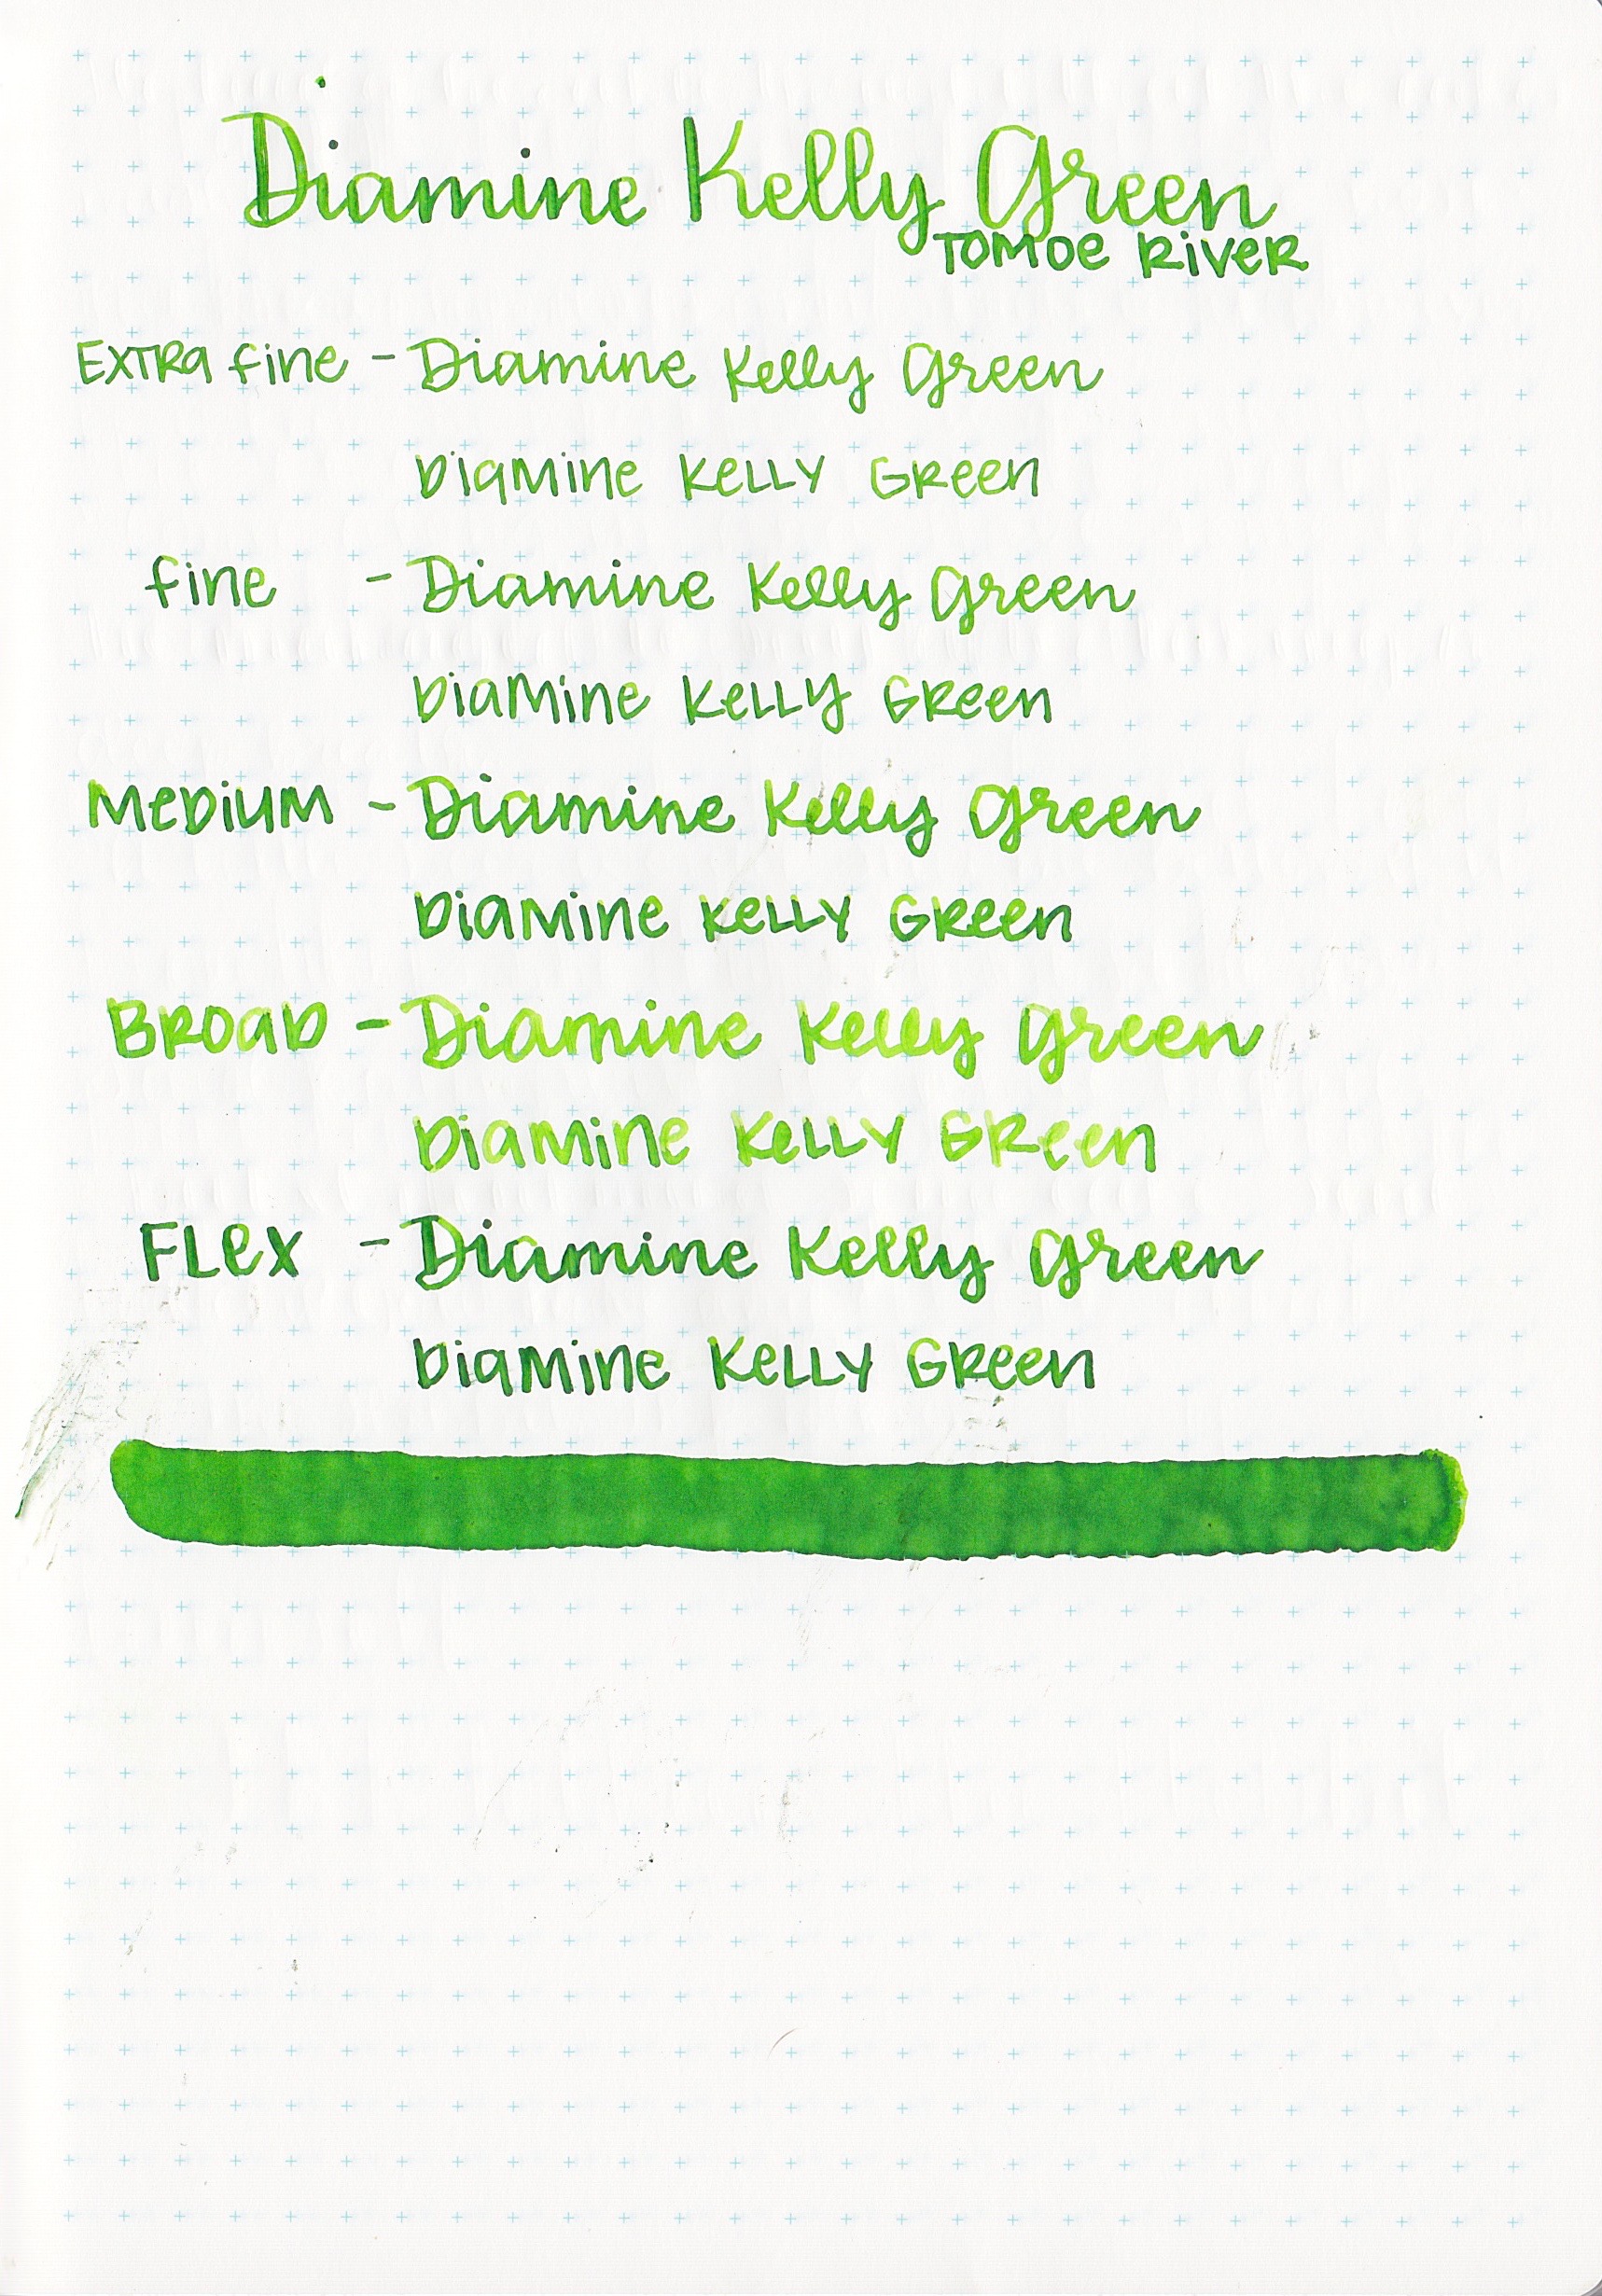 Diamine Kelly Green
TOMOE RIVER
EXTRA fine - Diamine Kelly Green
DiAMine KeLLY GReen
fine - Diamine Kelly Green
DiAMine KeLLY GReen
MeDiUM - Diamine Kelly Green
DiAMine KeLLY GReen
BROAD - Diamine Kelly Green
DiAMine KeLLY GReen
FLeX - Diamine Kelly Green
DiAMine KeLLY GReen